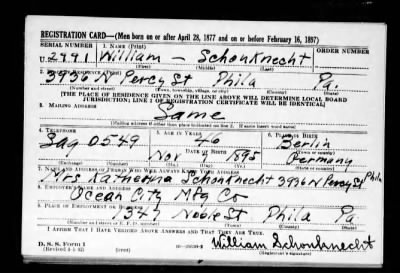 REGISTRATION CARD—(Men born on or after April 28, 1877 and on or before February 16, 1897)
SERIAL NUMBER 1. NAME (Print) ORDER NUMBER
U 2991 William — Schonknecht
(First) (Middle) (Last)
2. PLACE OF RESIDENCE (Print)
3936 N Percy St Phila Pa.
(Number and street) (Town, township, village, or city) (County) (State)
[THE PLACE OF RESIDENCE GIVEN ON THE LINE ABOVE WILL DETERMINE LOCAL BOARD
JURISDICTION; LINE 2 OF REGISTRATION CERTIFICATE WILL BE IDENTICAL]
3. MAILING ADDRESS
Same
[Mailing address if other than place indicated on line 2. If same insert word same]
4. TELEPHONE 5. AGE IN YEARS 6. PLACE OF BIRTH
Sag 0549 46 Berlin
DATE OF BIRTH (Town or county)
Nov 9 1895 Germany
(Exchange) (Number) (Mo.) (Day) (Yr.) (State or country)
7. NAME AND ADDRESS OF PERSON WHO WILL ALWAYS KNOW YOUR ADDRESS
Mrs Katherina Schonknecht 3936 N Percy St Phila
8. EMPLOYER'S NAME AND ADDRESS
Ocean City Mfg Co
9. PLACE OF EMPLOYMENT OR BUSINESS
1347 Noble St Phila Pa
(Number and street or R. F. D. number) (Town) (County) (State)
I AFFIRM THAT I HAVE VERIFIED ABOVE ANSWERS AND THAT THEY ARE TRUE.
D. S. S. Form 1
(over)
William Schonknecht
(Registrant's signature)